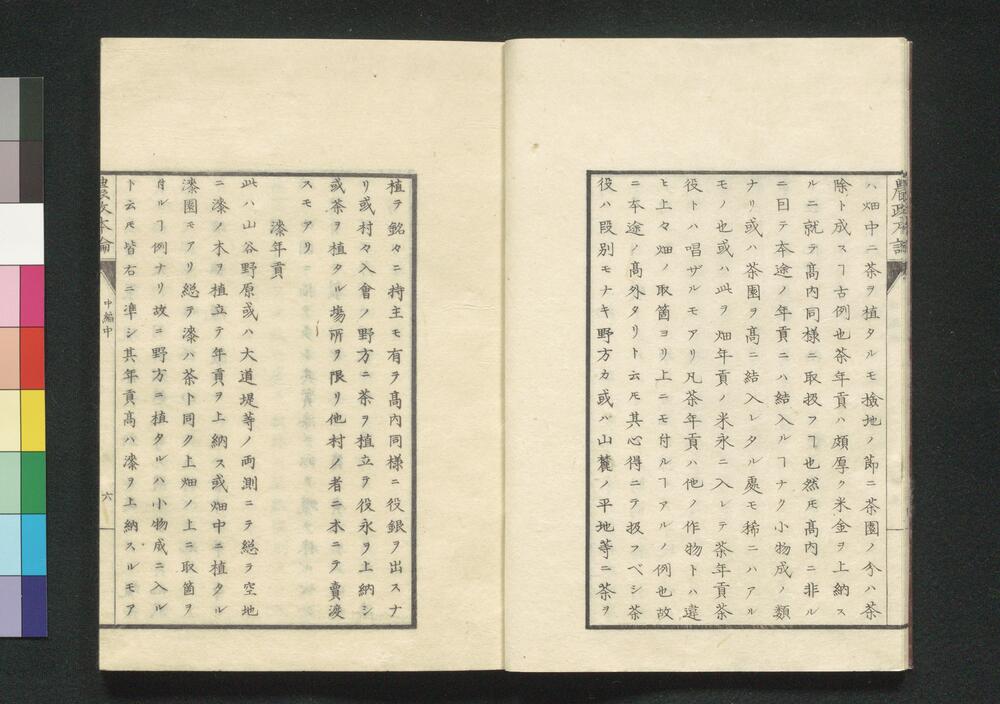 ハ畑中ニ茶ヲ植タルモ撿地ノ節ニ茶園ノ分ハ茶
除ト成スヿ古例也茶年貢ハ頗厚ク米金ヲ上納ス
ルニ就テ髙内同様ニ取扱フヿ也然𪜈髙内ニ非ル
ニ曰テ本途ノ年貢ニハ結入ルヿナク小物成ノ類
ナリ或ハ茶園ヲ髙ニ結入レタル處モ稀ニハアル
モノ也或ハ此ヲ畑年貢ノ米永ニ入レテ茶年貢茶
役トハ唱ザルモアリ凡茶年貢ハ他ノ作物トハ違
ヒ上々畑ノ取箇ヨリ上ニモ付ルヿアルノ例也故
ニ本途ノ髙外タリト云𪜈其心得ニテ扱フベシ茶
役ハ段別モナキ野方カ或ハ山麓ノ平地等ニ茶ヲ
農政本論
植ヲ銘々ニ持主モ有ヲ髙内同様ニ役銀ヲ出スナ
リ或村々入會ノ野方ニ茶ヲ植立ヲ役永ヲ上納シ
或茶ヲ植タル場所ヲ限リ他村ノ者ニ木ニテ賣渡
スモアリ
漆年貢
此ハ山谷野原或ハ大道堤等ノ両測ニテ総ヲ空地
ニ漆ノ木ヲ植立テ年貢ヲ上納ス或畑中ニ植タル
漆園モアリ総テ漆ハ茶ト同ク上畑ノ上ニ取箇ヲ
付ルヿ例ナリ故ニ野方ニ植タルハ小物成ニ入ル
ト云𪜈皆右ニ準シ其年貢髙ハ漆ヲ上納スルモア
農政本論
中編中
六